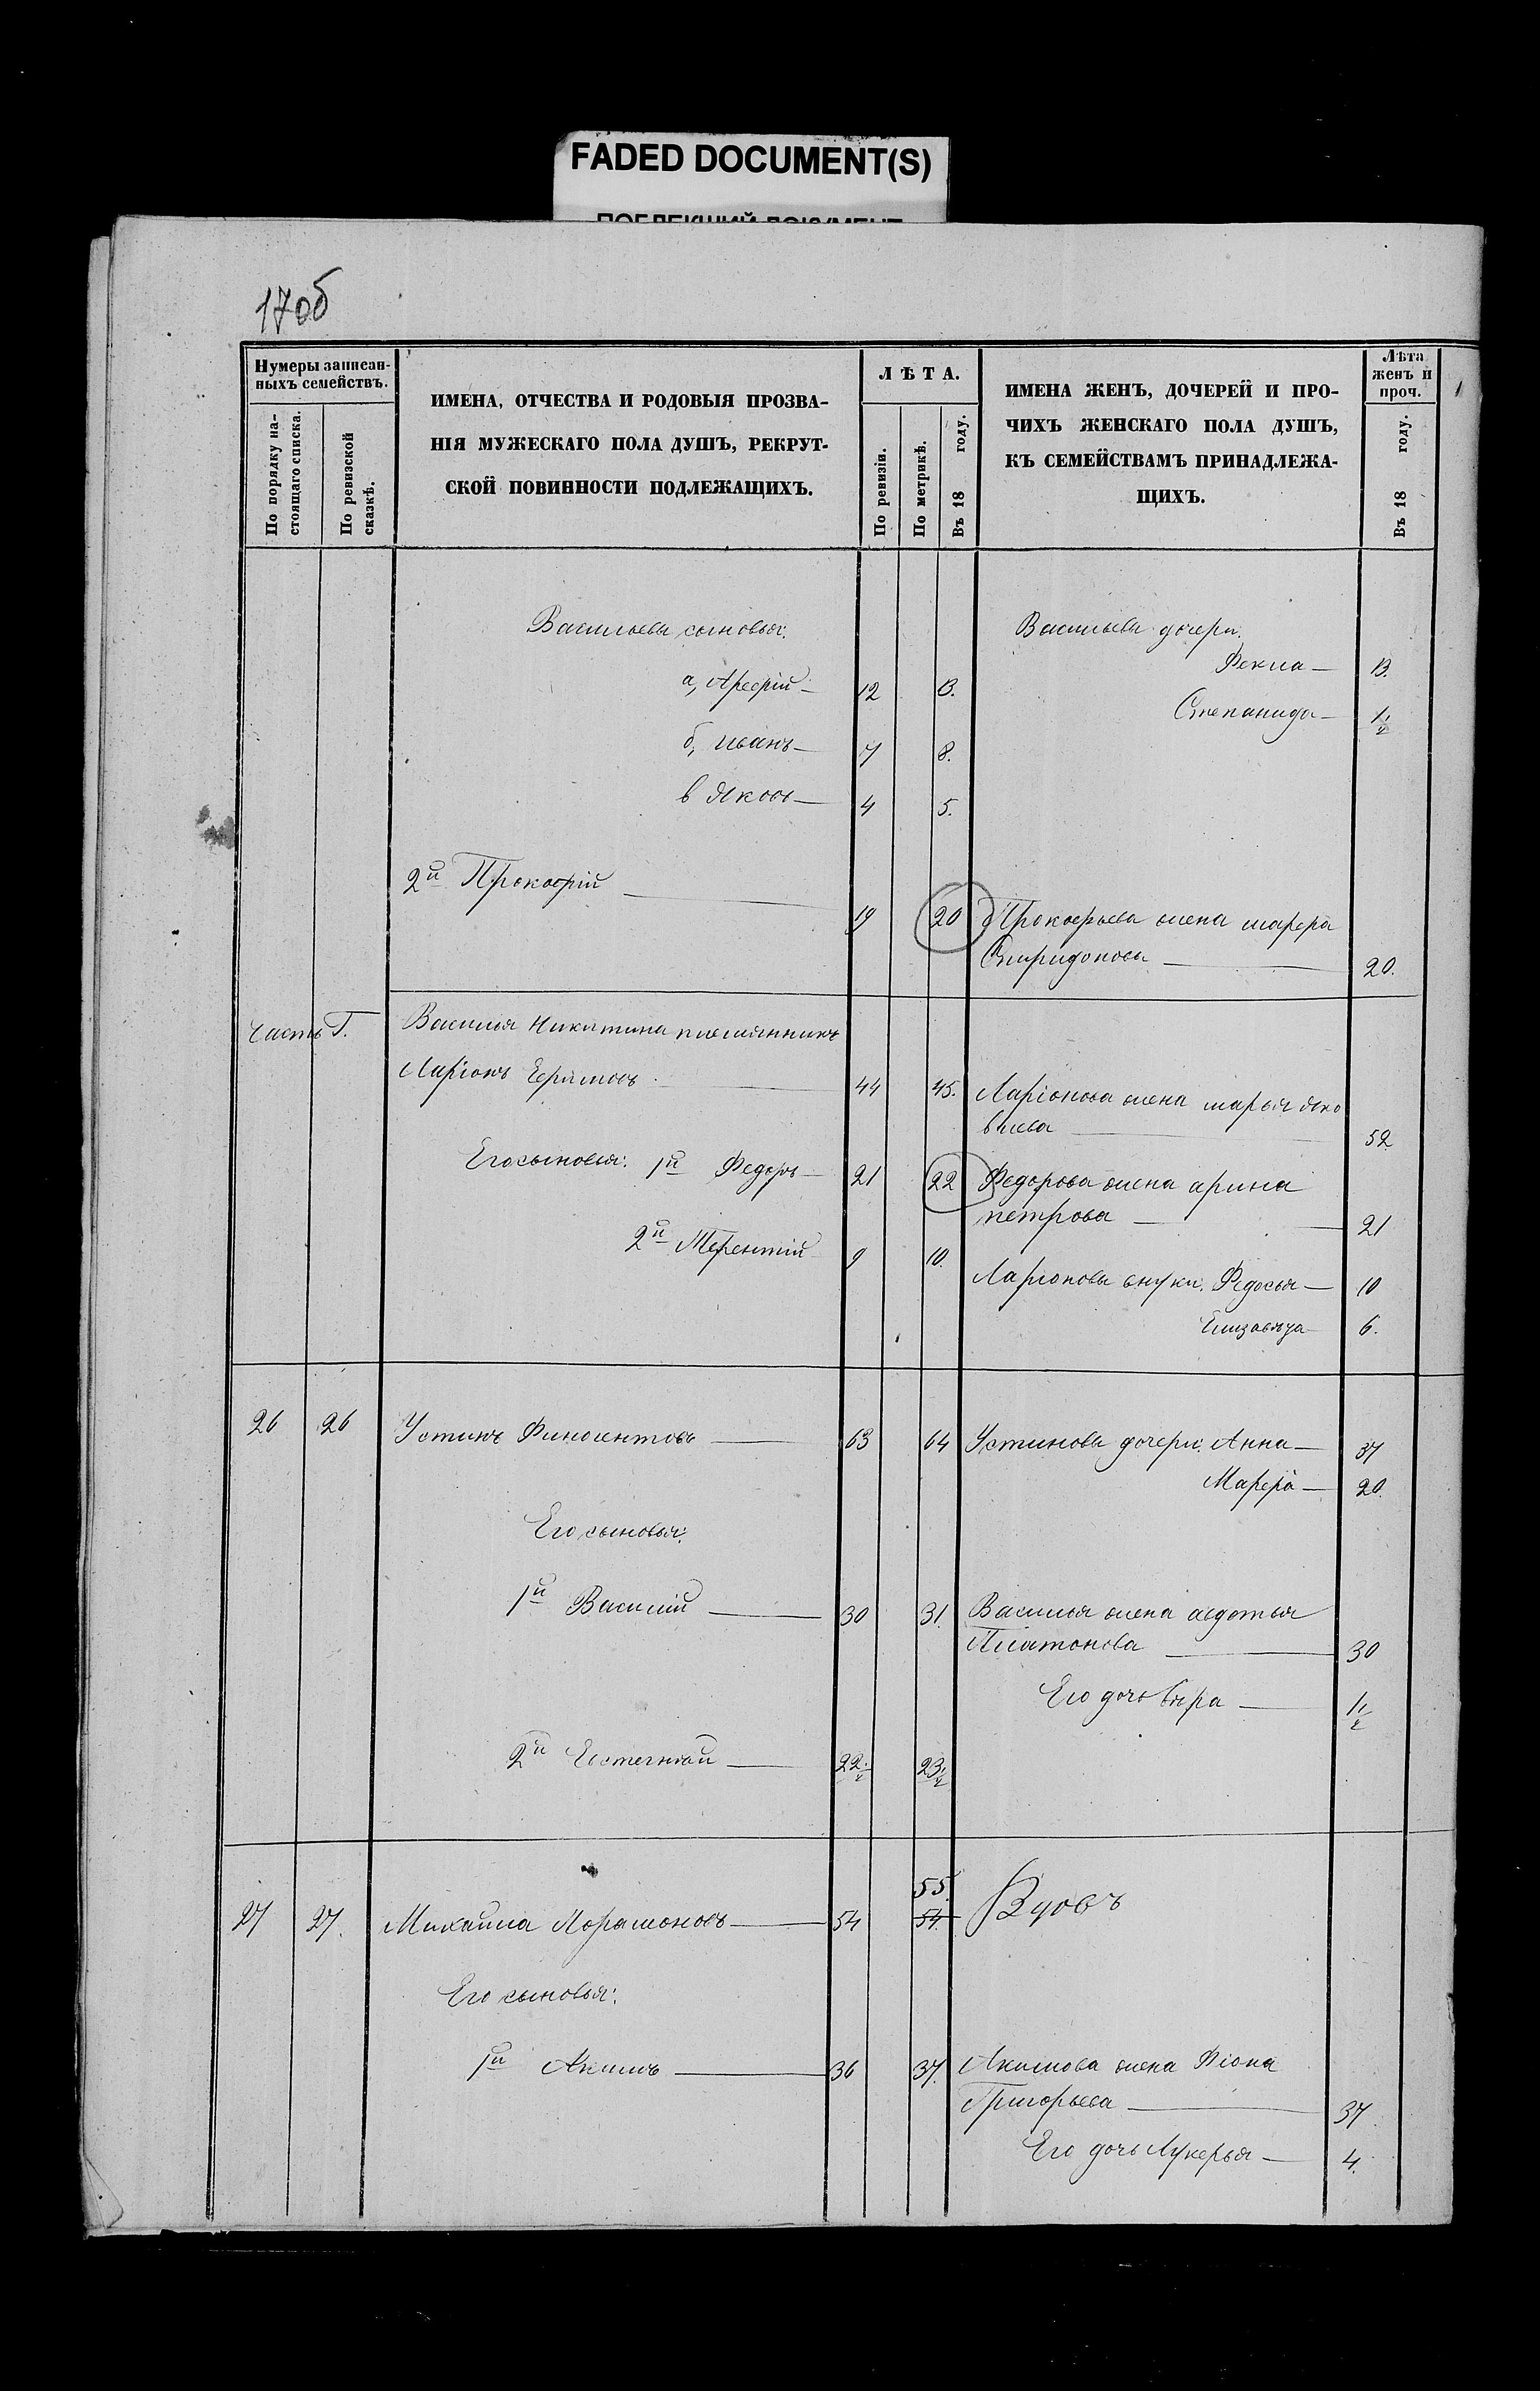 FADED DOCUMENT(S)
170б
Нумеры записан-
ныхъ семействъ.
По порядку на-
стоящаго списка.
По ревизской
сказкѣ.
ИМЕНА, ОТЧЕСТВА И РОДОВЫЯ ПРОЗВА-
НІЯ МУЖЕСКАГО ПОЛА ДУШЪ, РЕКРУТ-
СКОЙ ПОВИННОСТИ ПОДЛЕЖАЩИХЪ.
ЛѢТА.
По ревизіи.
По метрикѣ.
Въ 18 году.
ИМЕНА ЖЕНЪ, ДОЧЕРЕЙ И ПРО-
ЧИХЪ ЖЕНСКАГО ПОЛА ДУШЪ,
КЪ СЕМЕЙСТВАМЪ ПРИНАДЛЕЖА-
ЩИХЪ.
Лѣта
женъ и
проч.
Въ 18 году.
Васильевы сыновья: Васильевы дочери:
Фекла — 13.
а, Арефій — 12 13.
Степанида — 1/2
б, Иванъ — 7 8.
в Яковъ — 4 5.
2й Прокофій — 19 20 Прокофьева жена марфа
Спиридонова — 20.
Часть Г. Василья Никитина племянникъ
Ларіонъ Ефимовъ — 44 45. Ларіонова жена марья яко
влева — 52
Его сыновья: 1й Федоръ — 21 22 Федорова жена арина
петрова — 21
2й Терентій 9 10.
Ларіоновы внуки: Федосья — 10
Елизавета — 6.
26 26 Устинъ — 63 64 Устиновы дочери: Анна — 37
Марфа — 20.
Его сыновья:
1й Василій — 30 31. Василья жена авдотья
Платонова — 30
Его дочь Вѣра — 1/2
2й Евстегнѣй — 22 1/2 23 1/2
55.
27 27. Михайла — 54 54. Вдовъ
Его сыновья:
1й Акимъ — 36 37. Акимова жена Фіона
Григорьева — 37.
Его дочь Лукерья — 4.